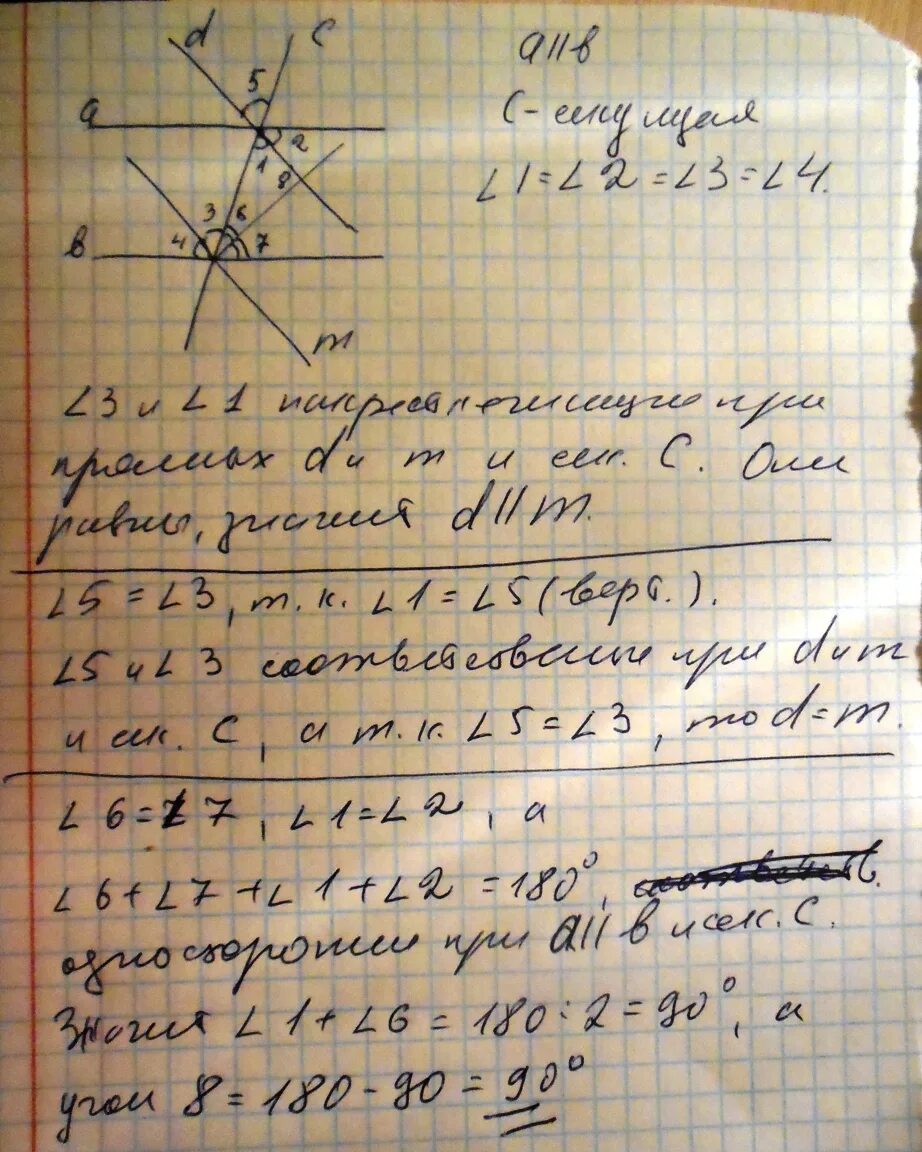 d c
a ∥ в
5
a
с - секущая
1 2
8
∠1 = ∠2 = ∠3 = ∠4.
3 6
4 7
в
m
∠3 и ∠1 накрест лежащие при
прямых d и m и сек. С. Они
равны, значит d ∥ m.
∠5 = ∠3, т.к. ∠1 = ∠5 (верт.).
∠5 и ∠3 соответственные при d и m
и сек. С, а т.к. ∠5 = ∠3, то d = m.
∠6 = ∠7, ∠1 = ∠2, а
∠6 + ∠7 + ∠1 + ∠2 = 180°,
односторонние при a ∥ в и сек. С.
Значит ∠1 + ∠6 = 180 : 2 = 90°, а
угол 8 = 180 - 90 = 90°